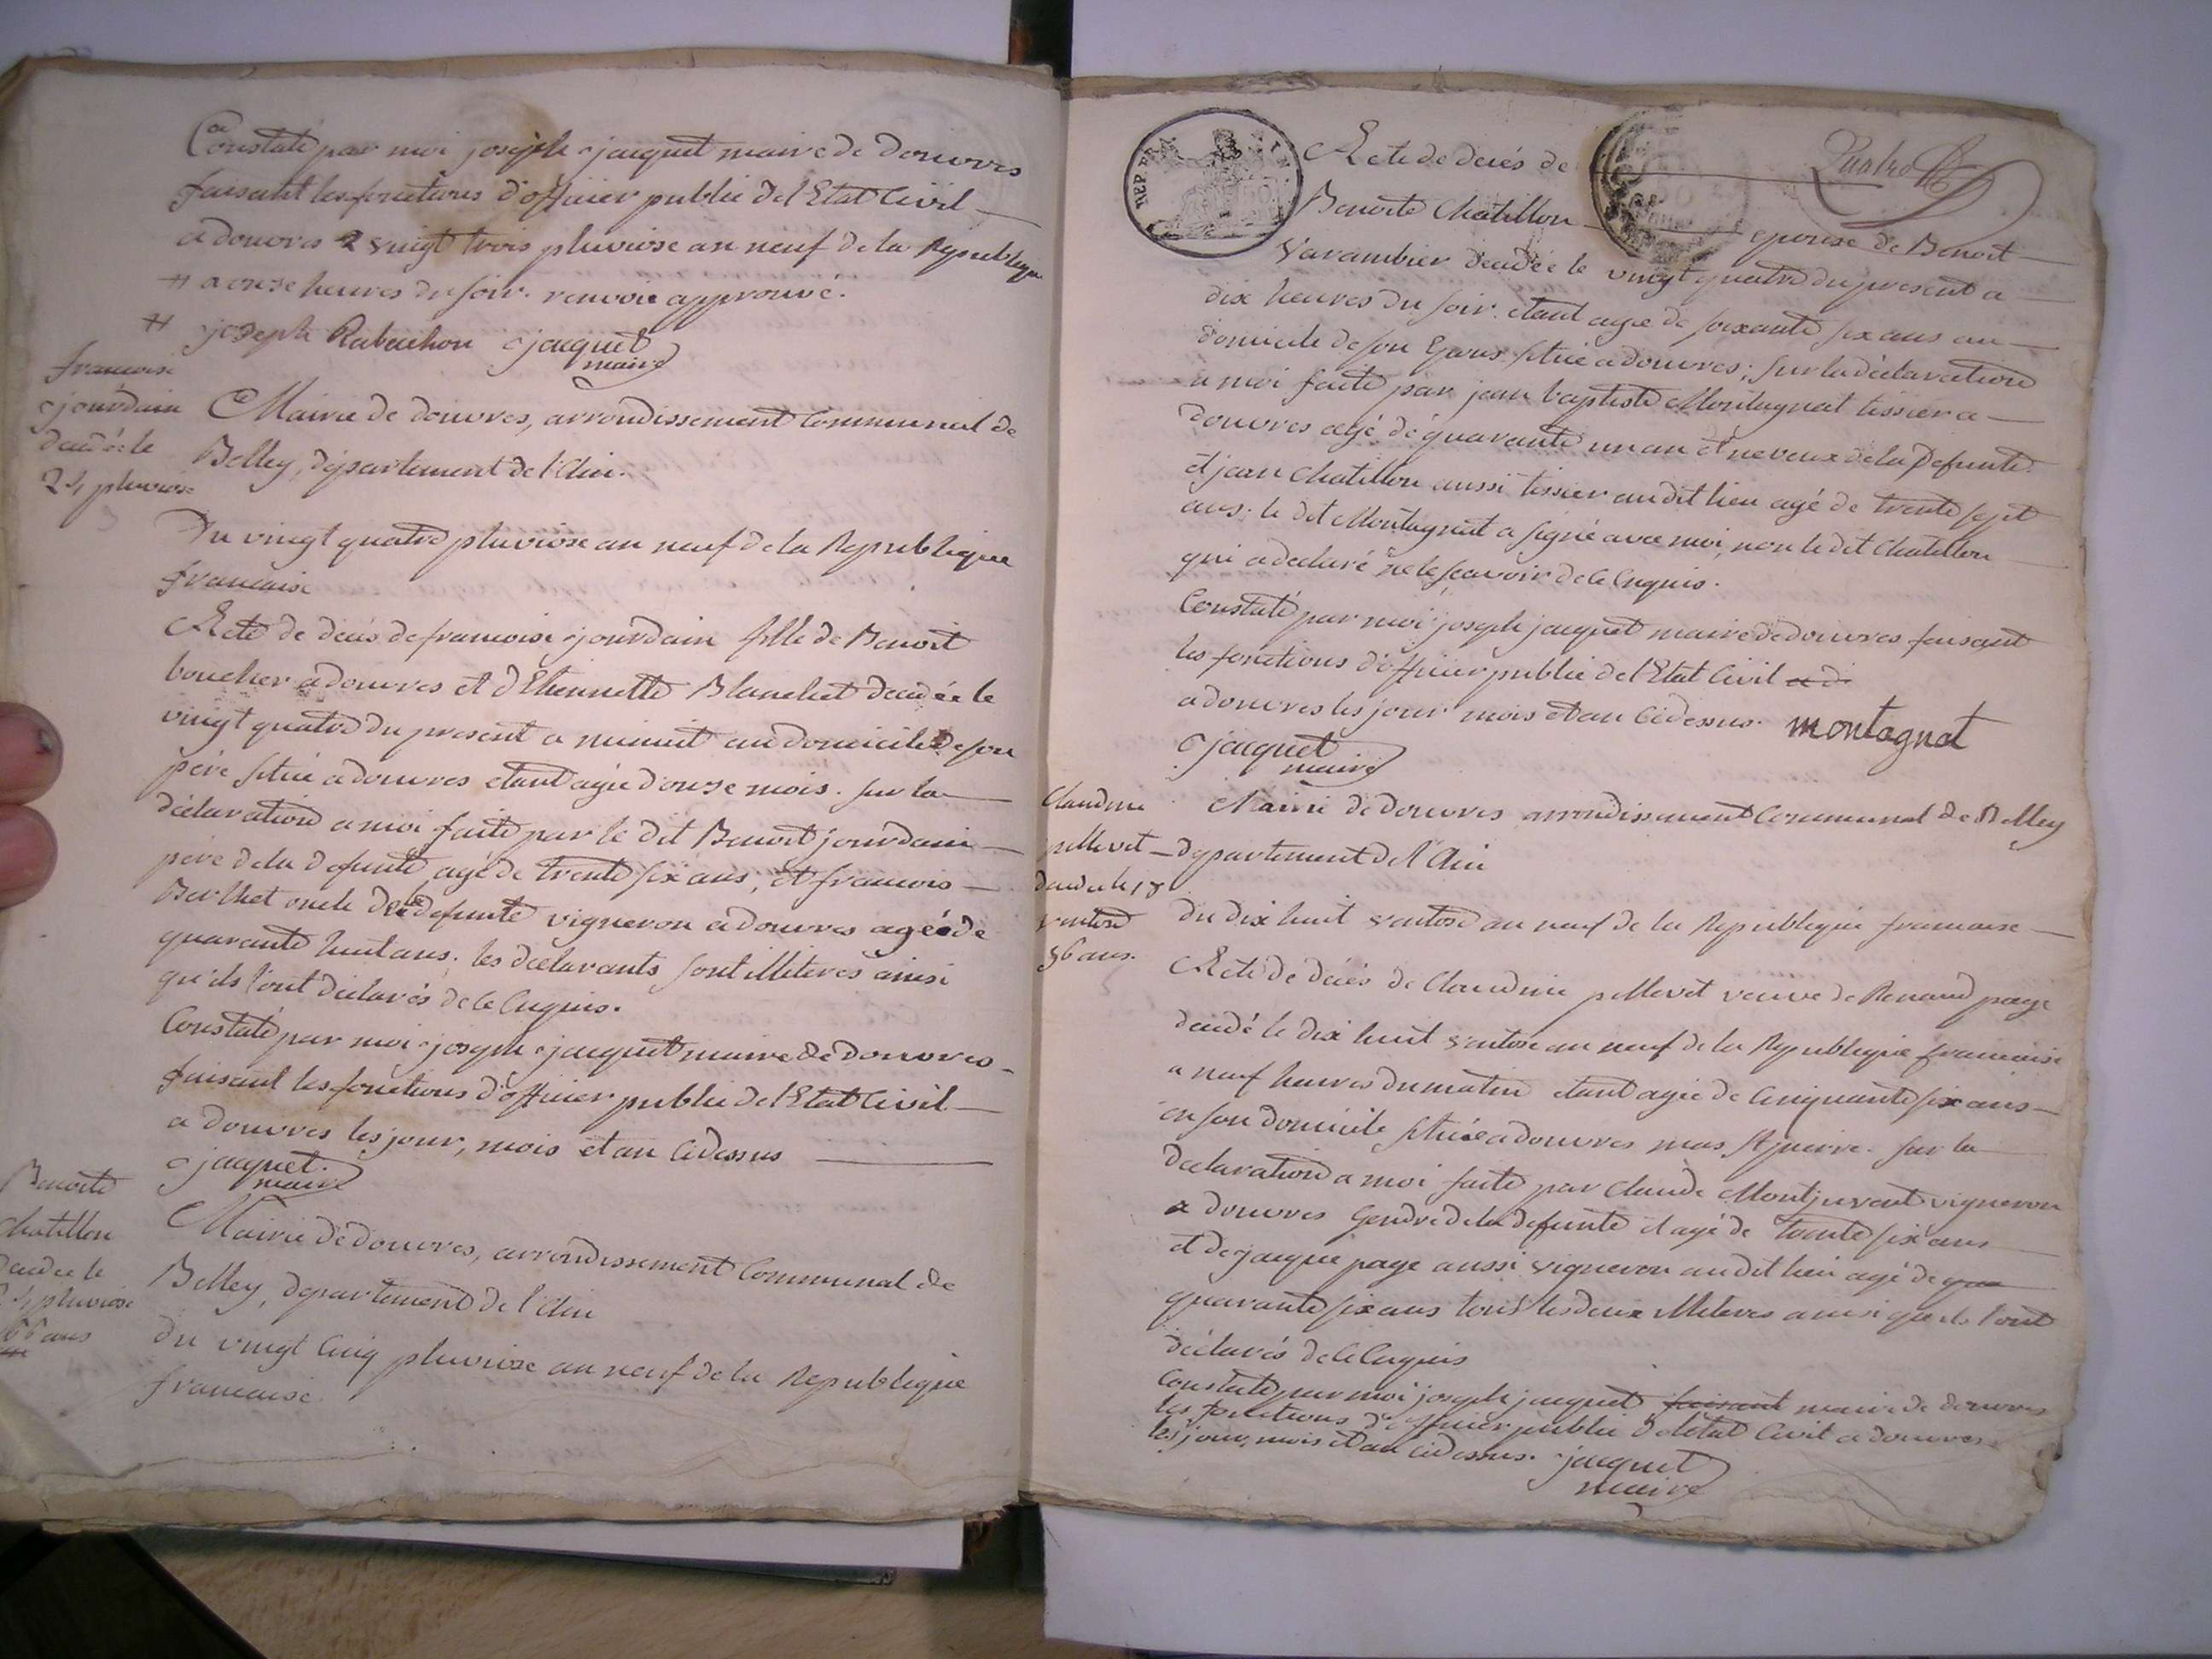 Constaté par moi joseph jacquet maire de douvres
faisant les fonctions d'officier public de l'Etat Civil
a douvres 2 vingt trois pluviose an neuf de la Republique
# a onse heures du soir. renvoie approuvé.
# joseph Rabuchon jacquet
maire
francoise
jourdain
decedée le
24 pluviose
Mairie de douvres, arrondissement Communal de
Belley, département de l'Ain.
Du vingt quatre pluviose an neuf de la Republique
francaise
Acte de decés de francoise jourdain fille de Benoit
boucher a douvres et d'Etiennette Blanchet decedée le
vingt quatre du present a minuit au domicile de son
pere situé a douvres etant agée d'onse mois. sur la
déclaration a moi faite par le dit Benoit jourdain
pere de la defunte agé de trente six ans, et francois
Berthet oncle de la defunte vigneron a douvres agé de
quarante huit ans. les declarants sont illiteres ainsi
qu'ils l'ont déclarés de ce Enquis.
Constaté par moi joseph jacquet maire de douvres
faisant les fonctions d'officier public de l'Etat Civil
a douvres les jour, mois et an Cidessus
jacquet.
maire
Benoite
chatillon
decedée le
24 pluviose
66 ans
Mairie de douvres, arrondissement Communal de
Belley, departement de l'Ain
Du vingt Cinq pluviose an neuf de la Republique
francaise.
REP. FRA.
Quatre
Acte de decés de
Benoite Chatillon epouse de Benoit
Varambier decedée le vingt quatre du present a
dix heures du soir. etant agée de soixante six ans au
domicile de son Epous situé a douvres; sur la déclaration
a moi faite par jean baptiste Montagnat tissier a
douvres agé de quarante un an et neveux de la defunte.
et jean Chatillon aussi tissier audit lieu agé de trente sept
ans. le dit Montagnat a signé avec moi, non le dit Chatillon
qui a declaré ne le scavoir de ce Enquis.
Constaté par moi joseph jacquet maire de douvres faisant
les fonctions d'officier public de l'Etat Civil a d
a douvres les jour mois et an Cidessus. montagnat
jacquet
maire
Claudine
pellevet
decedee le 18
ventose
56 ans.
Mairie de douvres arrondissement Communal de Belley
departement de l'Ain
du dix huit ventose an neuf de la Republique francaise
Acte de décés de Claudine pellevet veuve de Renaud page
decedé le dix huit ventose an neuf de la Republique francaise
a neuf heures du matin etant agée de Cinquante six ans
en son domicile situé a douvres mas St pierre. sur la
declaration a moi faite par Claude Montjuvent vigneron
a douvres gendre de la defunte et agé de trente six ans
et de jacque page aussi vigneron audit lieu agé de qua
quarante six ans tous les deux illiteres ainsi que ils l'ont
déclarés de ce Enquis
Constaté par moi joseph jacquet faisant maire de douvres
les fonctions d'officier public de l'etat Civil a douvres
les jour, mois et an Cidessus. jacquet
maire